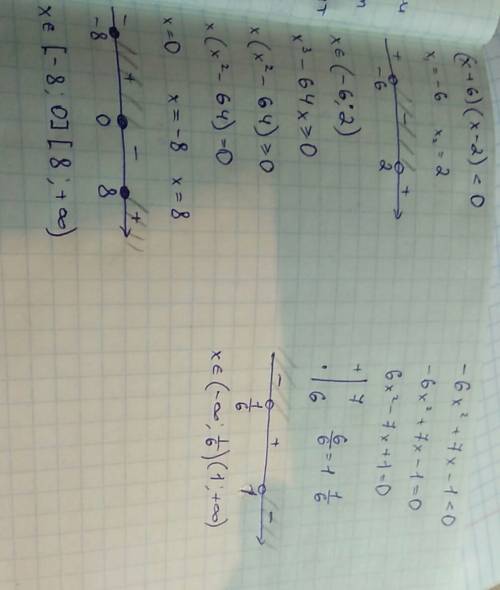 (x+6)(x-2)<0
x₁=-6 x₂=2
+ - +
-6 2
x∈(-6;2)
x³-64x≥0
x(x²-64)≥0
x(x²-64)=0
x=0 x=-8 x=8
- + - +
-8 0 8
x∈[-8;0][8;+∞)
-6x²+7x-1<0
-6x²+7x-1=0
6x²-7x+1=0
+ | 7 6/6=1 1/6
· | 6
- + -
1/6 1
x∈(-∞;1/6)(1;+∞)